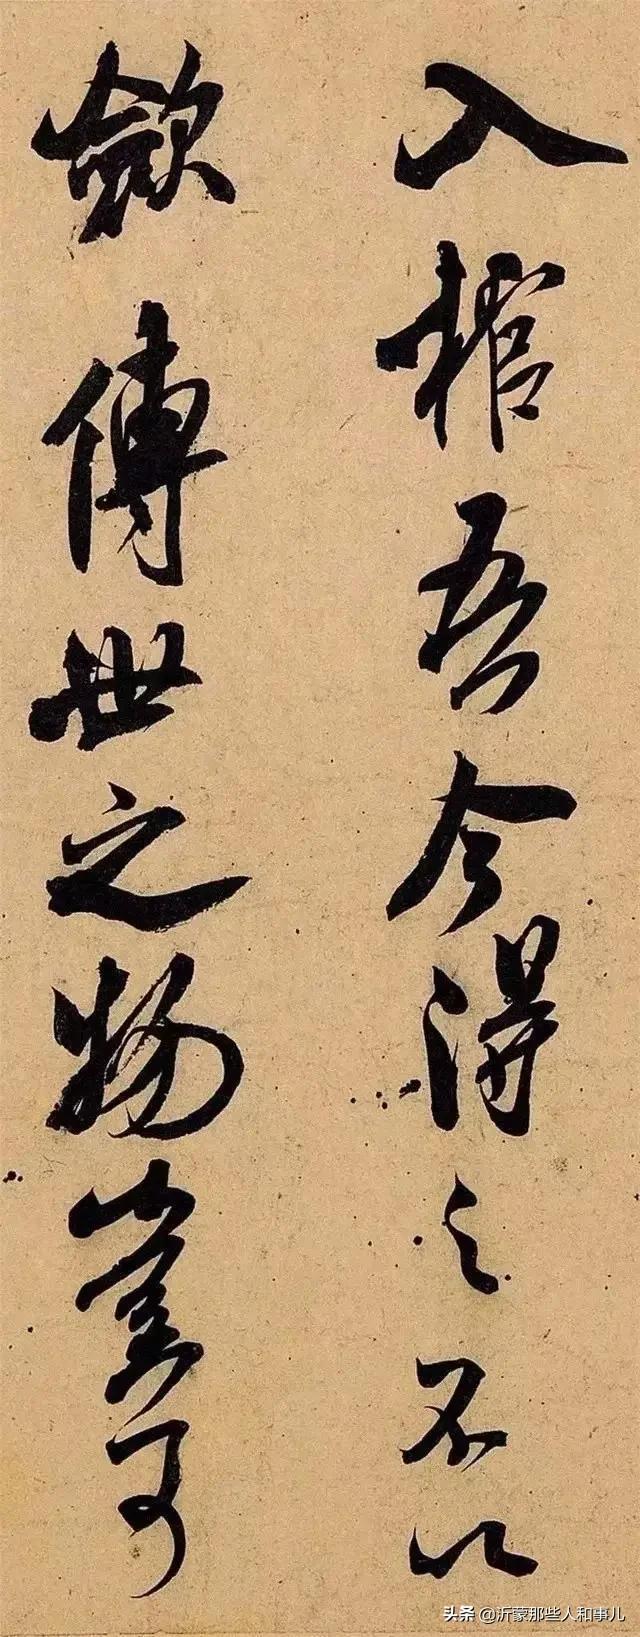 入棺吾今得之不以
斂傳世之物豈可
头条 @沂蒙那些人和事儿